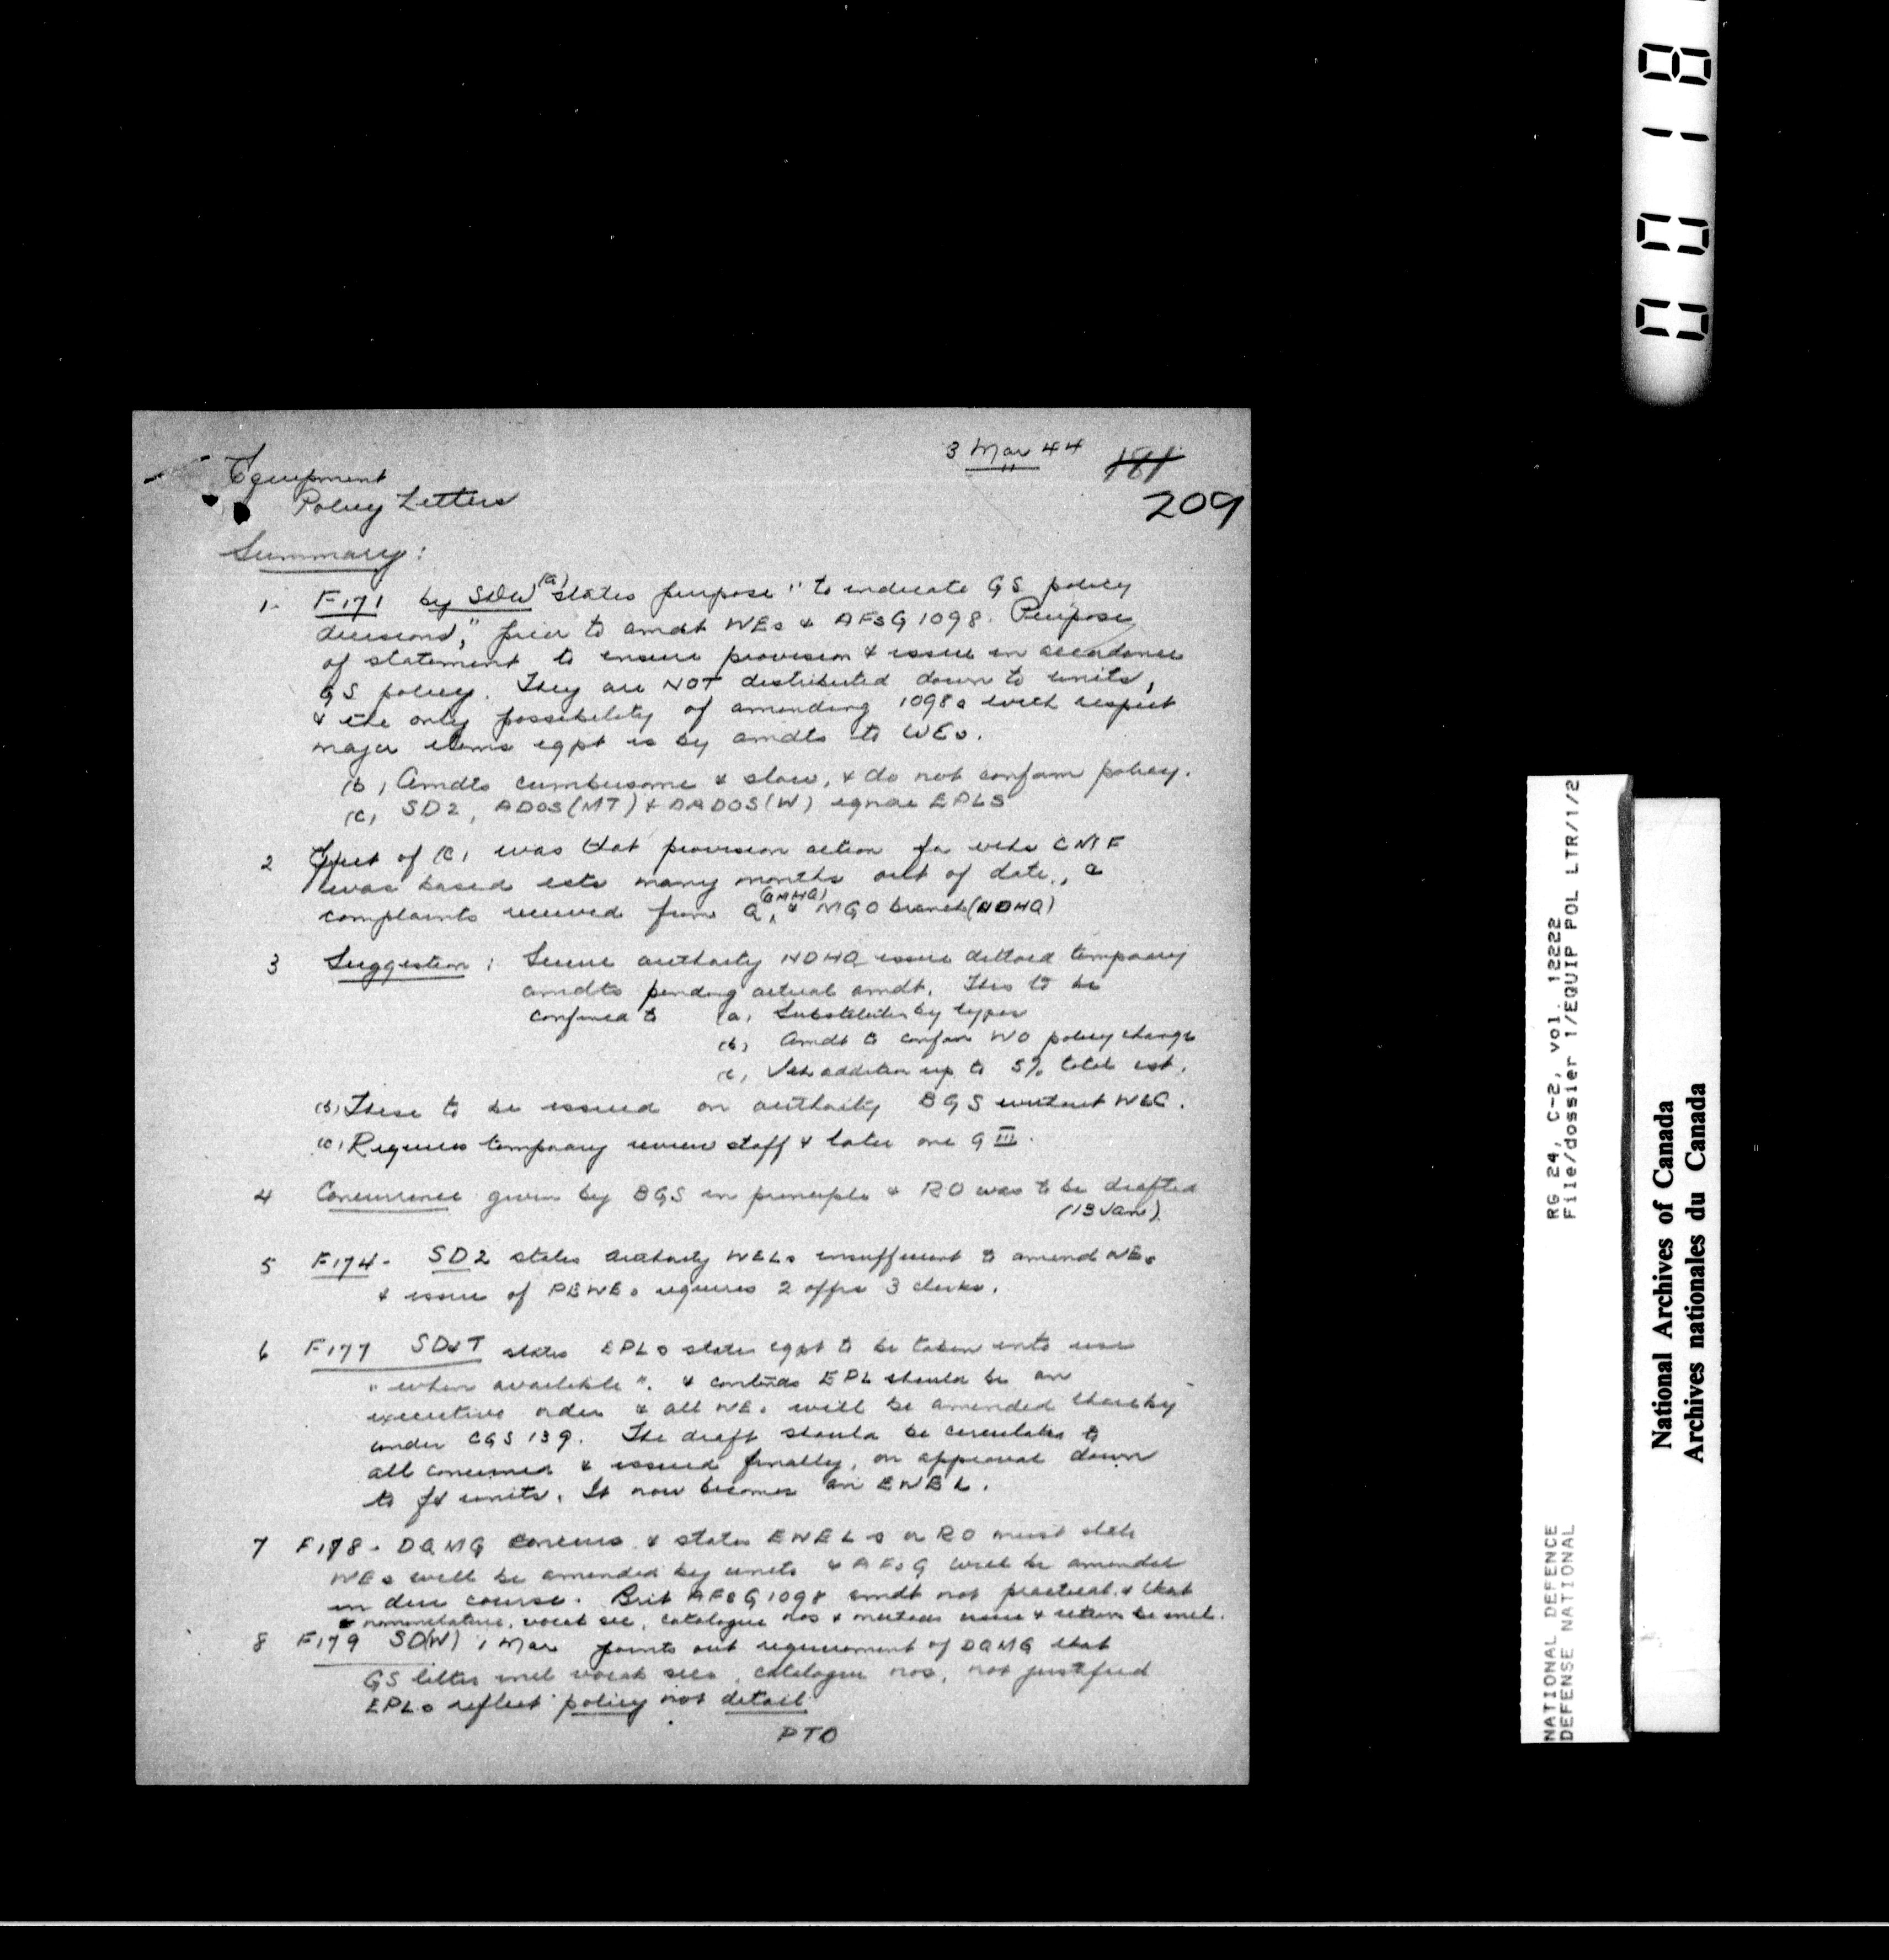 3 Mar 44
181
209
Equipment
Policy Letters
Summary:
1. F171 by SDW (a) states purpose "to indicate GS policy
decisions," prior to amdt WEs & AFsG 1098. Purpose
of statement to ensure provision & issue in accordance
GS policy. They are NOT distributed down to units,
& the only possibility of amending 1098s with respect
major items eqpt is by amdts to WEs.
(b) Amdts cumbersome & slow, & do not conform policy.
(c) SD2, ADOS(MT) & DADOS(W) ignore EPLs
2 Effect of (c) was that provision action for vehs CMF
was based ests many months out of date,
complaints received from Q (CMHQ) & MGO branch (NDHQ)
3 Suggestion: Secure authority NDHQ issue temporary
amdts pending actual amdt. This to be
confined to (a) Substitution by types
(b) Amdt to conform WO policy change
(c) Veh addition up to 5% total est.
(b) These to be issued on authority BGS without WEC.
(c) Requires temporary review staff & later one G III.
4 Concurrence given by BGS in principle & RO was to be drafted
(13 Jan).
5 F174. SD2 states authority WELs insufficient to amend WEs
& issue of PEWEs requires 2 offrs 3 clerks.
6 F177 SD&T states EPLs state eqpt to be taken into use
"when available". & contends EPL should be an
executive order & all WEs will be amended thereby
under CGS 139. The draft should be circulated to
all concerned & issued finally, on approval down
to fd units. It now becomes an EWEL.
7 F178. DQMG concurs & states EWELs or RO must state
WEs will be amended by units & AFsG will be amended
in due course. Brit AFsG 1098 amdt not practical & that
nomenclature, vocab sec, catalogue nos & methods issue & return be incl.
8 F179 SD(W) 1 Mar points out requirement of DQMG that
GS letter incl vocab secs, catalogue nos, not justified
EPLs reflect policy not detail.
PTO
0018
RG 24, C-2, vol. 12222
File/dossier 1/EQUIP POL LTR/1/2
NATIONAL DEFENCE
DEFENSE NATIONAL
National Archives of Canada
Archives nationales du Canada